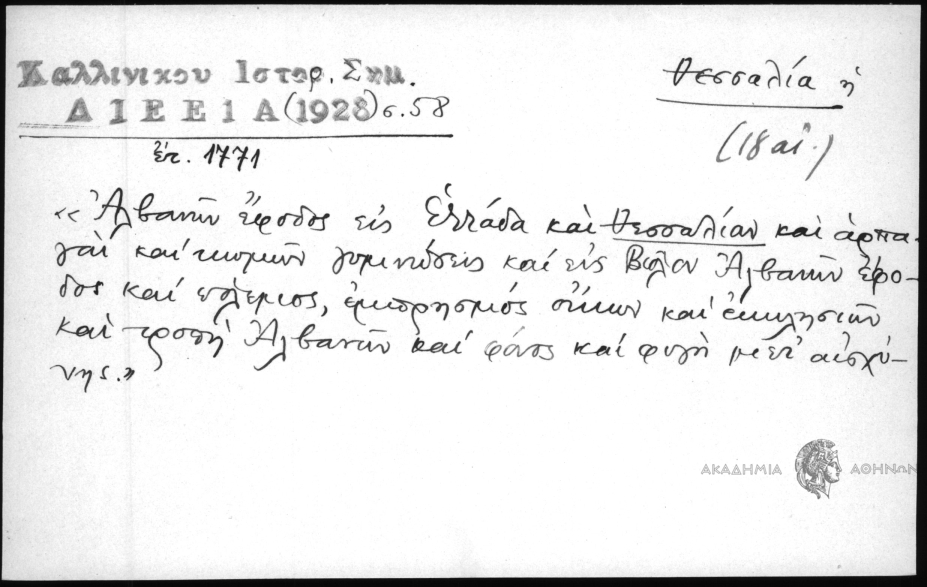 Καλλινικου Ιστορ. Σημ.
ΔΙΕΕ 1 Α (1928) σ. 58
Θεσσαλία ἡ
(18 αἰ.)
ἔτ. 1771
«Ἀλβανῶν ἔφοδος εἰς Ἑλλάδα καὶ Θεσσαλίαν καὶ ἁρπα-
γαὶ καὶ κωμῶν γυμνώσεις καὶ εἰς Βόλον Ἀλβανῶν ἔφο-
δος καὶ πόλεμος, ἐμπρησμός οἴκων καὶ ἐκκλησιῶν
καὶ τροπὴ Ἀλβανῶν καὶ φόνος καὶ φυγὴ μετ' αἰσχύ-
νης.»
ΑΚΑΔΗΜΙΑ ΑΘΗΝΩΝ